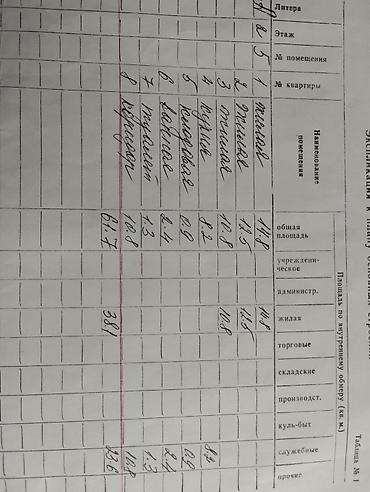 Экспликация к плану
Таблица № 1
Литера Этаж № помещения № квартиры Наименование помещения Площадь по внутреннему обмеру (кв. м.)
общая площадь учреждени-ческое администр. жилая торговые складские производст. куль-быт служебные прочие
А 2 5 1 жилая 14.8 14.8
2 жилая 12.5 12.5
3 жилая 10.8 10.8
4 кухня 8.2 8.2
5 кладовая 0.9 0.9
6 ванная 2.4 2.4
7 туалет 1.3 1.3
8 коридор 10.8 10.8
61.7 38.1 23.6